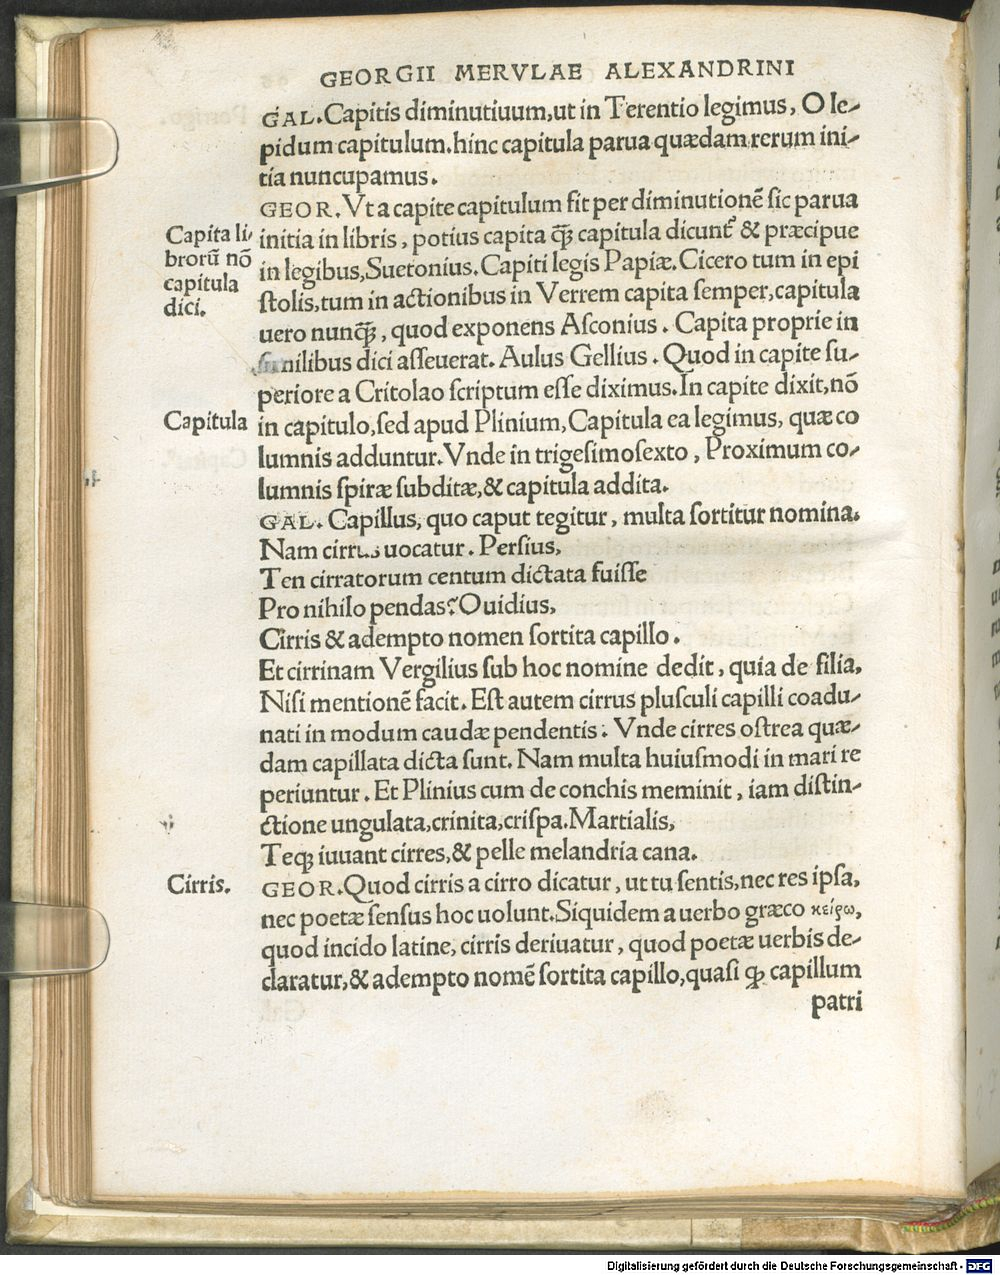 GEORGII MERVLAE ALEXANDRINI
GAL. Capitis diminutiuum, ut in Terentio legimus, O le-
pidum capitulum. hinc capitula parua quædam rerum ini-
tia nuncupamus.
GEOR. Vt a capite capitulum fit per diminutionē sic parua
Capita li-
brorū nō
capitula
dici.
initia in libris, potius capita q̃ꝫ capitula dicunt᷑ & præcipue
in legibus, Suetonius. Capiti legis Papiæ. Cicero tum in epi
stolis, tum in actionibus in Verrem capita semper, capitula
uero nunq̃ꝫ, quod exponens Asconius. Capita proprie in
similibus dici asseuerat. Aulus Gellius. Quod in capite su-
periore a Critolao scriptum esse diximus. In capite dixit, nō
Capitula
in capitulo, sed apud Plinium, Capitula ea legimus, quæ co
lumnis adduntur. Vnde in trigesimosexto, Proximum co-
lumnis spiræ subditæ, & capitula addita.
GAL. Capillus, quo caput tegitur, multa sortitur nomina.
Nam cirrus uocatur. Persius,
Ten cirratorum centum dictata fuisse
Pro nihilo pendas? Ouidius,
Cirris & adempto nomen sortita capillo.
Et cirrinam Vergilius sub hoc nomine dedit, quia de filia,
Nisi mentionē facit. Est autem cirrus plusculi capilli coadu-
nati in modum caudæ pendentis. Vnde cirres ostrea quæ-
dam capillata dicta sunt. Nam multa huiusmodi in mari re
periuntur. Et Plinius cum de conchis meminit, iam distin-
ctione ungulata, crinita, crispa. Martialis,
Teqꝫ iuuant cirres, & pelle melandria cana.
Cirris.
GEOR. Quod cirris a cirro dicatur, ut tu sentis, nec res ipsa,
nec poetæ sensus hoc uolunt. Siquidem a uerbo græco κείρω,
quod incido latine, cirris deriuatur, quod poetæ uerbis de-
claratur, & adempto nomē sortita capillo, quasi ꝙ capillum
patri
Digitalisierung gefördert durch die Deutsche Forschungsgemeinschaft - DFG